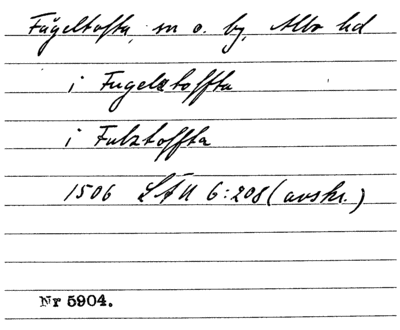 Fågeltofta, sn o. by, Albo hd
i Fugelztoffta
i Fulztoffta
1506 LÄU 6:208 (avskr.)
Nr 5904.